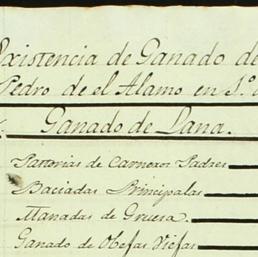 Existencia de Ganado de
Pedro de el Alamo en S.º d
Ganado de Lana.
Pastorias de Carneros Padres
Baciadas Principalas
Manadas de Gruesa.
Ganado de Obejas Viejas